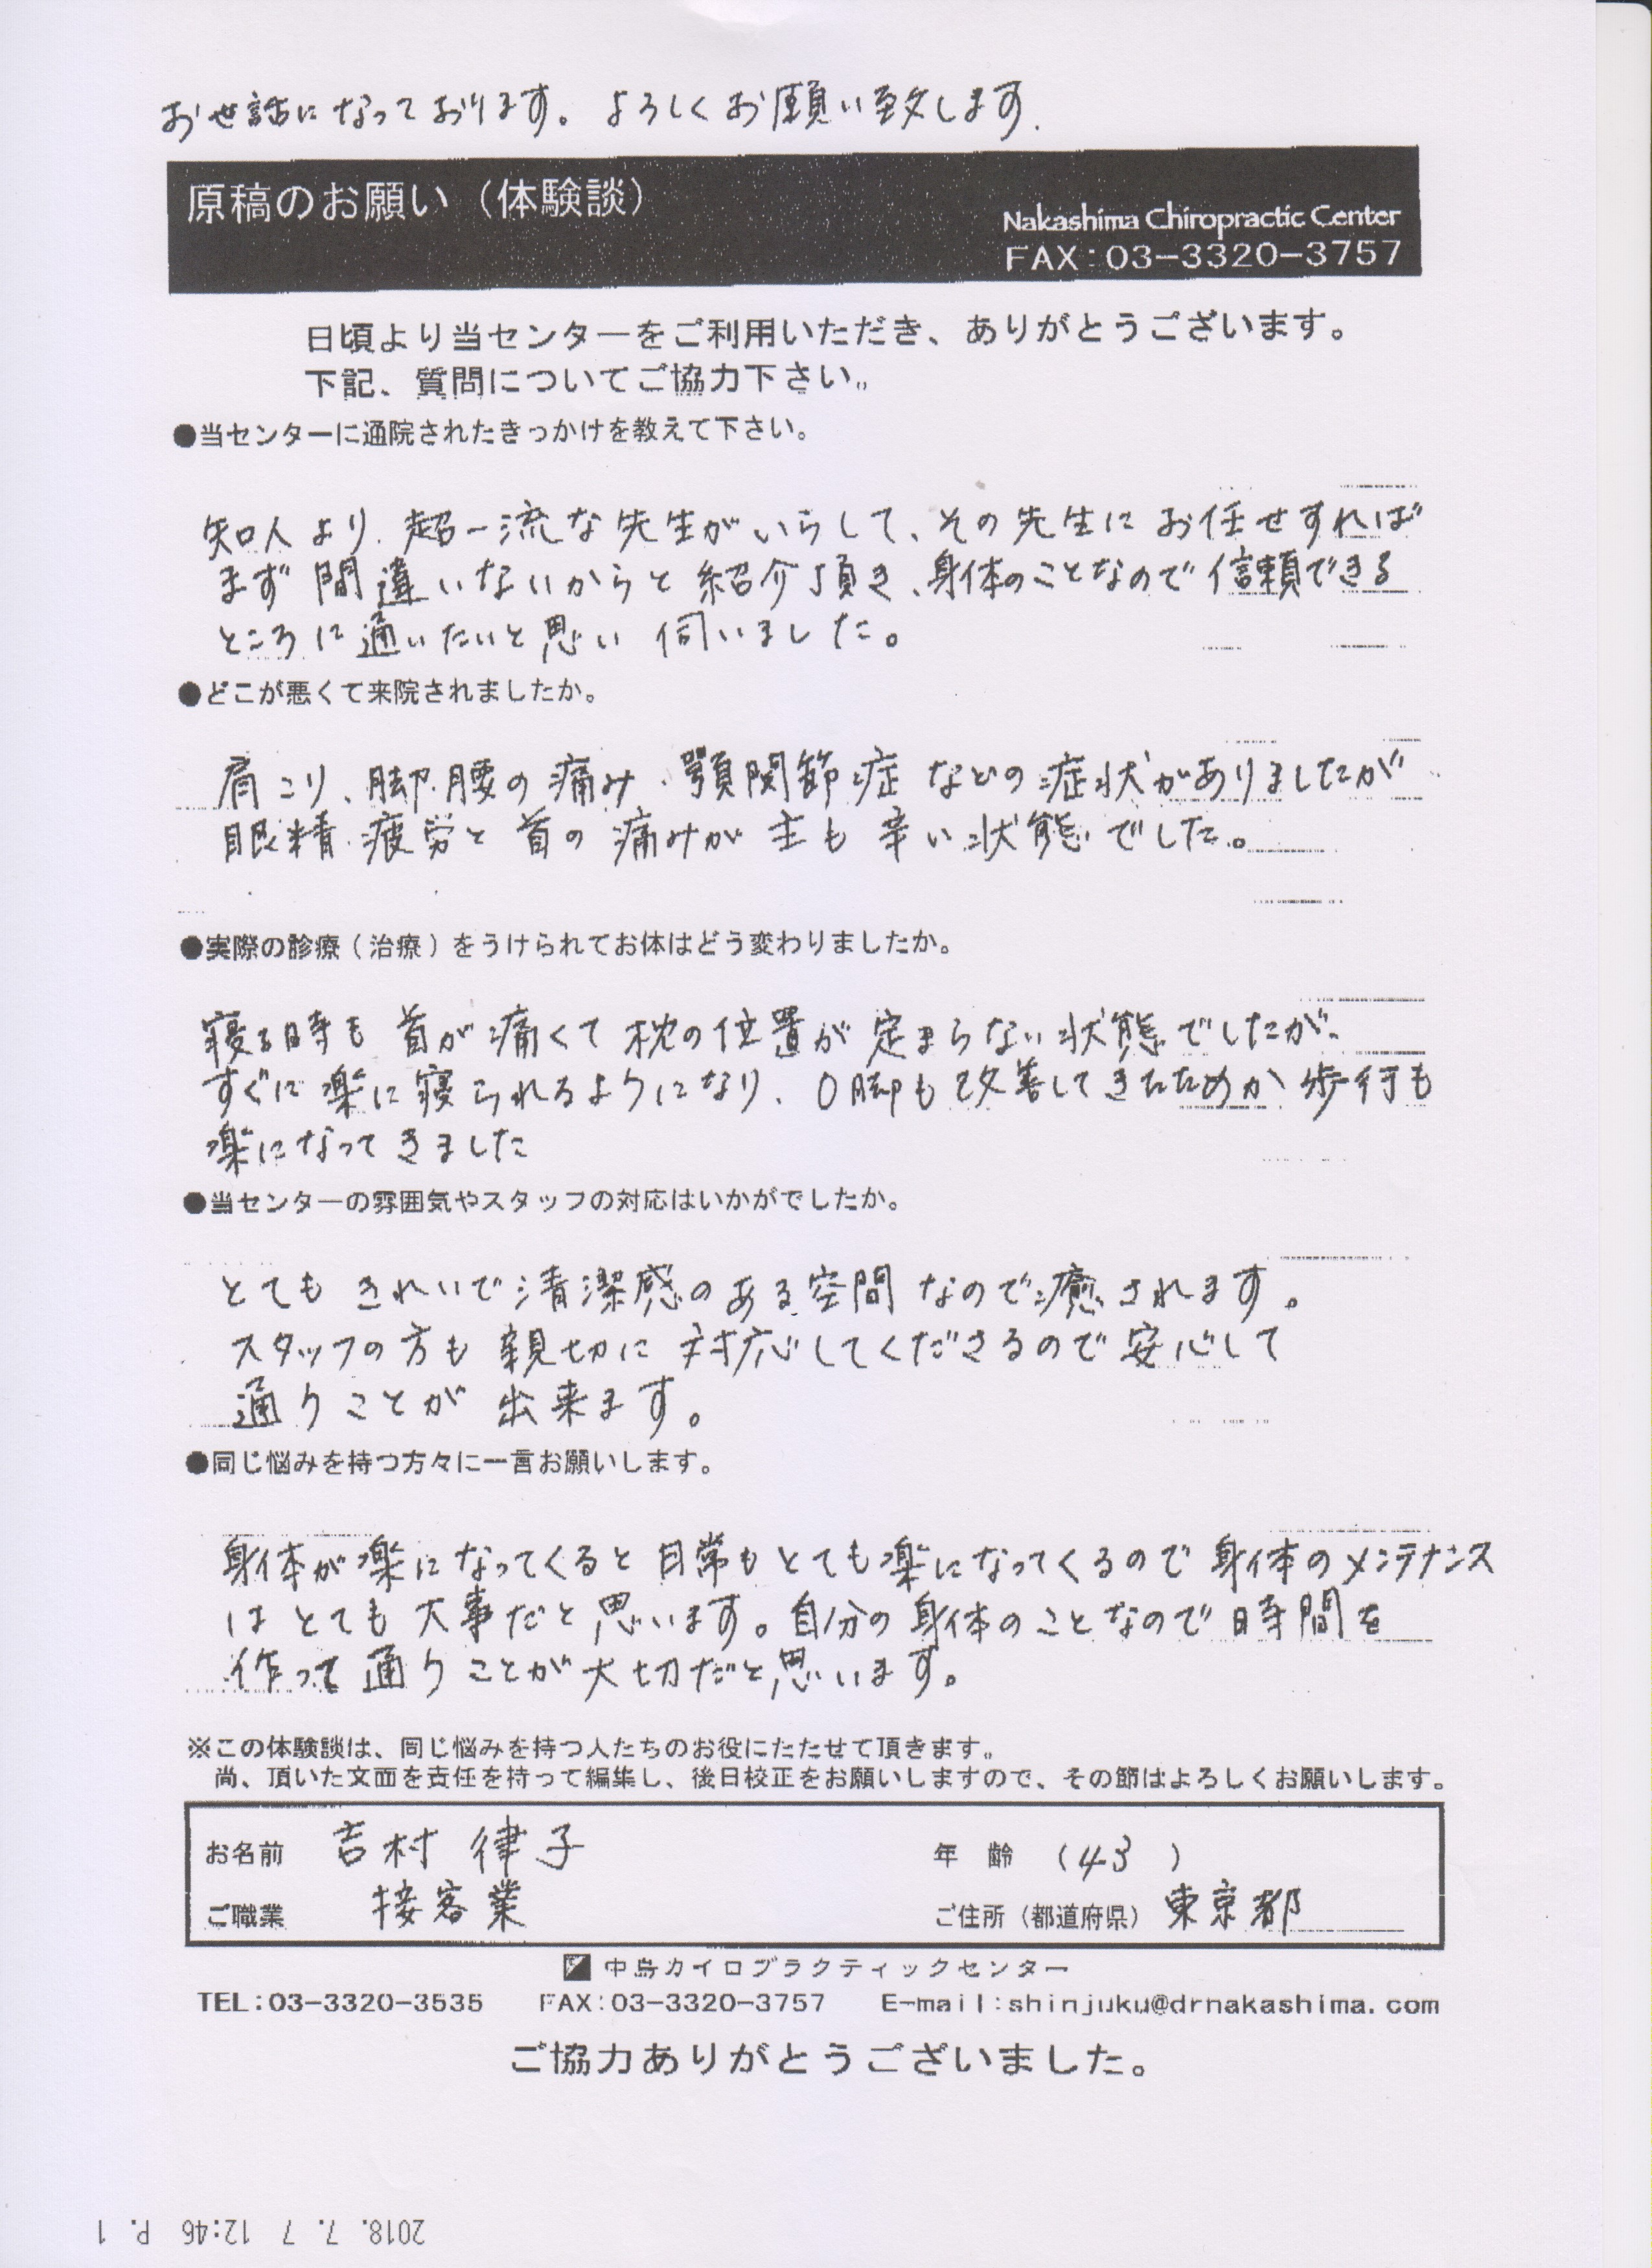 お世話になっております。よろしくお願い致します.
原稿のお願い（体験談）
Nakashima Chiropractic Center
FAX：03-3320-3757
日頃より当センターをご利用いただき、ありがとうございます。
下記、質問についてご協力下さい。
●当センターに通院されたきっかけを教えて下さい。
知人より、超一流な先生がいらして、その先生にお任せすれば
まず間違いないからと紹介頂き、身体のことなので信頼できる
ところに通いたいと思い伺いました。
●どこが悪くて来院されましたか。
肩こり、脚、腰の痛み、顎関節症などの症状がありましたが
眼精疲労と首の痛みが 辛い状態でした。
●実際の診療（治療）をうけられてお体はどう変わりましたか。
寝る時も首が痛くて枕の位置が定まらない状態でしたが、
すぐに楽に寝られるようになり、O脚も改善してきたためか歩行も
楽になってきました
●当センターの雰囲気やスタッフの対応はいかがでしたか。
とてもきれいで清潔感のある空間なので癒されます。
スタッフの方も親切に対応してくださるので安心して
通うことが出来ます。
●同じ悩みを持つ方々に一言お願いします。
身体が楽になってくると日常もとても楽になってくるので身体のメンテナンス
はとても大事だと思います。自分の身体のことなので時間を
作って通うことが大切だと思います。
※この体験談は、同じ悩みを持つ人たちのお役にたたせて頂きます。
尚、頂いた文面を責任を持って編集し、後日校正をお願いしますので、その節はよろしくお願いします。
お名前 吉村 律子 年 齢 （43 ）
ご職業 接客業 ご住所（都道府県）東京都
中島カイロプラクティックセンター
TEL：03-3320-3535 FAX：03-3320-3757 E-mail：shinjuku@drnakashima.com
ご協力ありがとうございました。
2018. 7. 7 12:46 P. 1